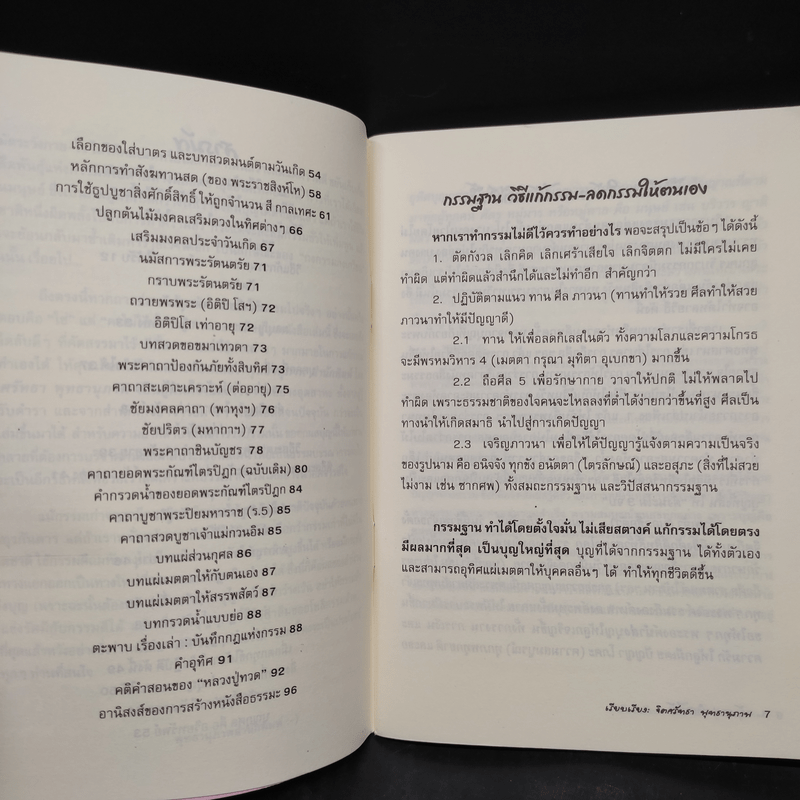 เลือกของใส่บาตร และบทสวดมนต์ตามวันเกิด 54
หลักการทำสังฆทานสด (ของ พระราชสิงห์โห) 58
การใช้ธูปบูชาสิ่งศักดิ์สิทธิ์ ให้ถูกจำนวน สี กาลเทศะ 61
ปลูกต้นไม้มงคลเสริมดวงในทิศต่างๆ 66
เสริมมงคลประจำวันเกิด 67
นมัสการพระรัตนตรัย 71
กราบพระรัตนตรัย 71
ถวายพรพระ (อิติปิ โสฯ) 72
อิติปิโส เท่าอายุ 72
บทสวดขอขมาเทวดา 73
พระคาถาป้องกันภัยทั้งสิบทิศ 73
คาถาสะเดาะเคราะห์ (ต่ออายุ) 75
ชัยมงคลคาถา (พาหุงฯ) 76
ชัยปริตร (มหากาฯ) 77
พระคาถาชินบัญชร 78
คาถายอดพระกัณฑ์ไตรปิฎก (ฉบับเดิม) 80
คำกรวดน้ำของยอดพระกัณฑ์ไตรปิฎก 84
คาถาบูชาพระปิยมหาราช (ร.5) 85
คาถาสวดบูชาเจ้าแม่กวนอิม 85
บทแผ่ส่วนกุศล 86
บทแผ่เมตตาให้กับตนเอง 87
บทแผ่เมตตาให้สรรพสัตว์ 87
บทกรวดน้ำแบบย่อ 88
ตะพาบ เรื่องเล่า : บันทึกกฎแห่งกรรม 88
คำอุทิศ 91
คติคำสอนของ “หลวงปู่ทวด” 92
อานิสงส์ของการสร้างหนังสือธรรมะ 96
กรรมฐาน วิธีแก้กรรม-ลดกรรมให้ตนเอง
หากเราทำกรรมไม่ดีไว้ควรทำอย่างไร พอจะสรุปเป็นข้อๆ ได้ดังนี้
1. ตัดกังวล เลิกคิด เลิกเศร้าเสียใจ เลิกจิตตก ไม่มีใครไม่เคย
ทำผิด แต่ทำผิดแล้วสำนึกได้และไม่ทำอีก สำคัญกว่า
2. ปฏิบัติตามแนว ทาน ศีล ภาวนา (ทานทำให้รวย ศีลทำให้สวย
ภาวนาทำให้มีปัญญาดี)
2.1 ทาน ให้เพื่อลดกิเลสในตัว ทั้งความโลภและความโกรธ
จะมีพรหมวิหาร 4 (เมตตา กรุณา มุทิตา อุเบกขา) มากขึ้น
2.2 ถือศีล 5 เพื่อรักษากาย วาจาให้ปกติ ไม่ให้พลาดไป
ทำผิด เพราะธรรมชาติของใจคนจะไหลลงที่ต่ำได้ง่ายกว่าขึ้นที่สูง ศีลเป็น
ทางนำให้เกิดสมาธิ นำไปสู่การเกิดปัญญา
2.3 เจริญภาวนา เพื่อให้ได้ปัญญารู้แจ้งตามความเป็นจริง
ของรูปนาม คือ อนิจจัง ทุกขัง อนัตตา (ไตรลักษณ์) และอสุภะ (สิ่งที่ไม่สวย
ไม่งาม เช่น ซากศพ) ทั้งสมถะกรรมฐาน และวิปัสสนากรรมฐาน
กรรมฐาน ทำได้โดยตั้งใจมั่น ไม่เสียสตางค์ แก้กรรมได้โดยตรง
มีผลมากที่สุด เป็นบุญใหญ่ที่สุด บุญที่ได้จากกรรมฐาน ได้ทั้งตัวเอง
และสามารถอุทิศแผ่เมตตาให้บุคคลอื่นๆ ได้ ทำให้ทุกชีวิตดีขึ้น
เรียบเรียง: จิตศรัทธา พุทธานุภาพ 7